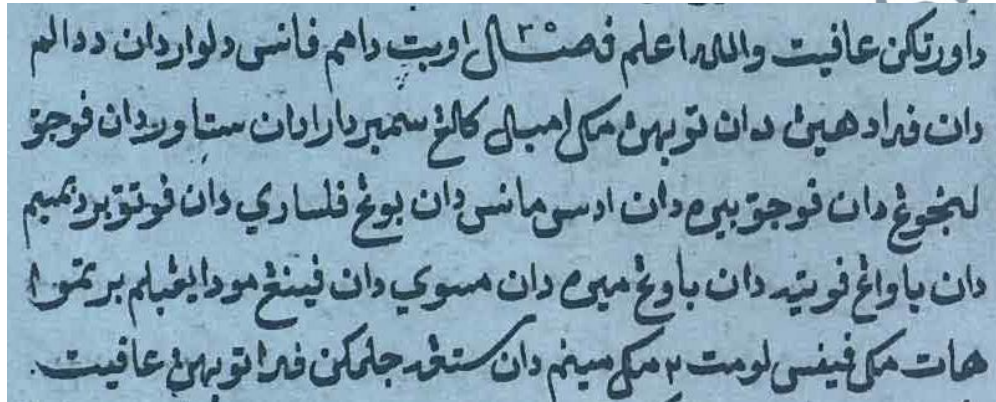 داورتكن عافيت والله اعلم فصل ٣ اوبت داهم فانس دلوار دان ددالم
دان فد دهين دان توبهن مك امبل كالڠ سمبر دارا دان ستاور دان فوجق
لنجوڠ دان فوجق بيره دان ادس مانس دان بوڠ فلساري دان فوتق
دان باواڠ فوتيه دان باوڠ ميره دان مسوي دان فينڠ مودا يڠ بلم برتمو
هات مك فيفس لومت ٢ مك مينم دان ستڠه جلمكن فد توبهن عافيت.